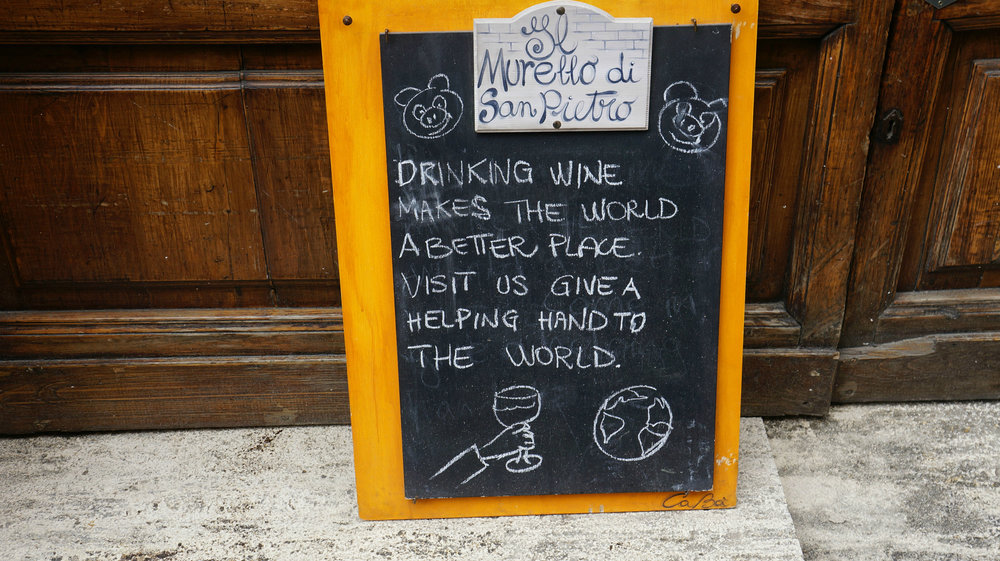 Il
Muretto di
San Pietro
DRINKING WINE
MAKES THE WORLD
A BETTER PLACE.
VISIT US GIVE A
HELPING HAND TO
THE WORLD.
CaBà